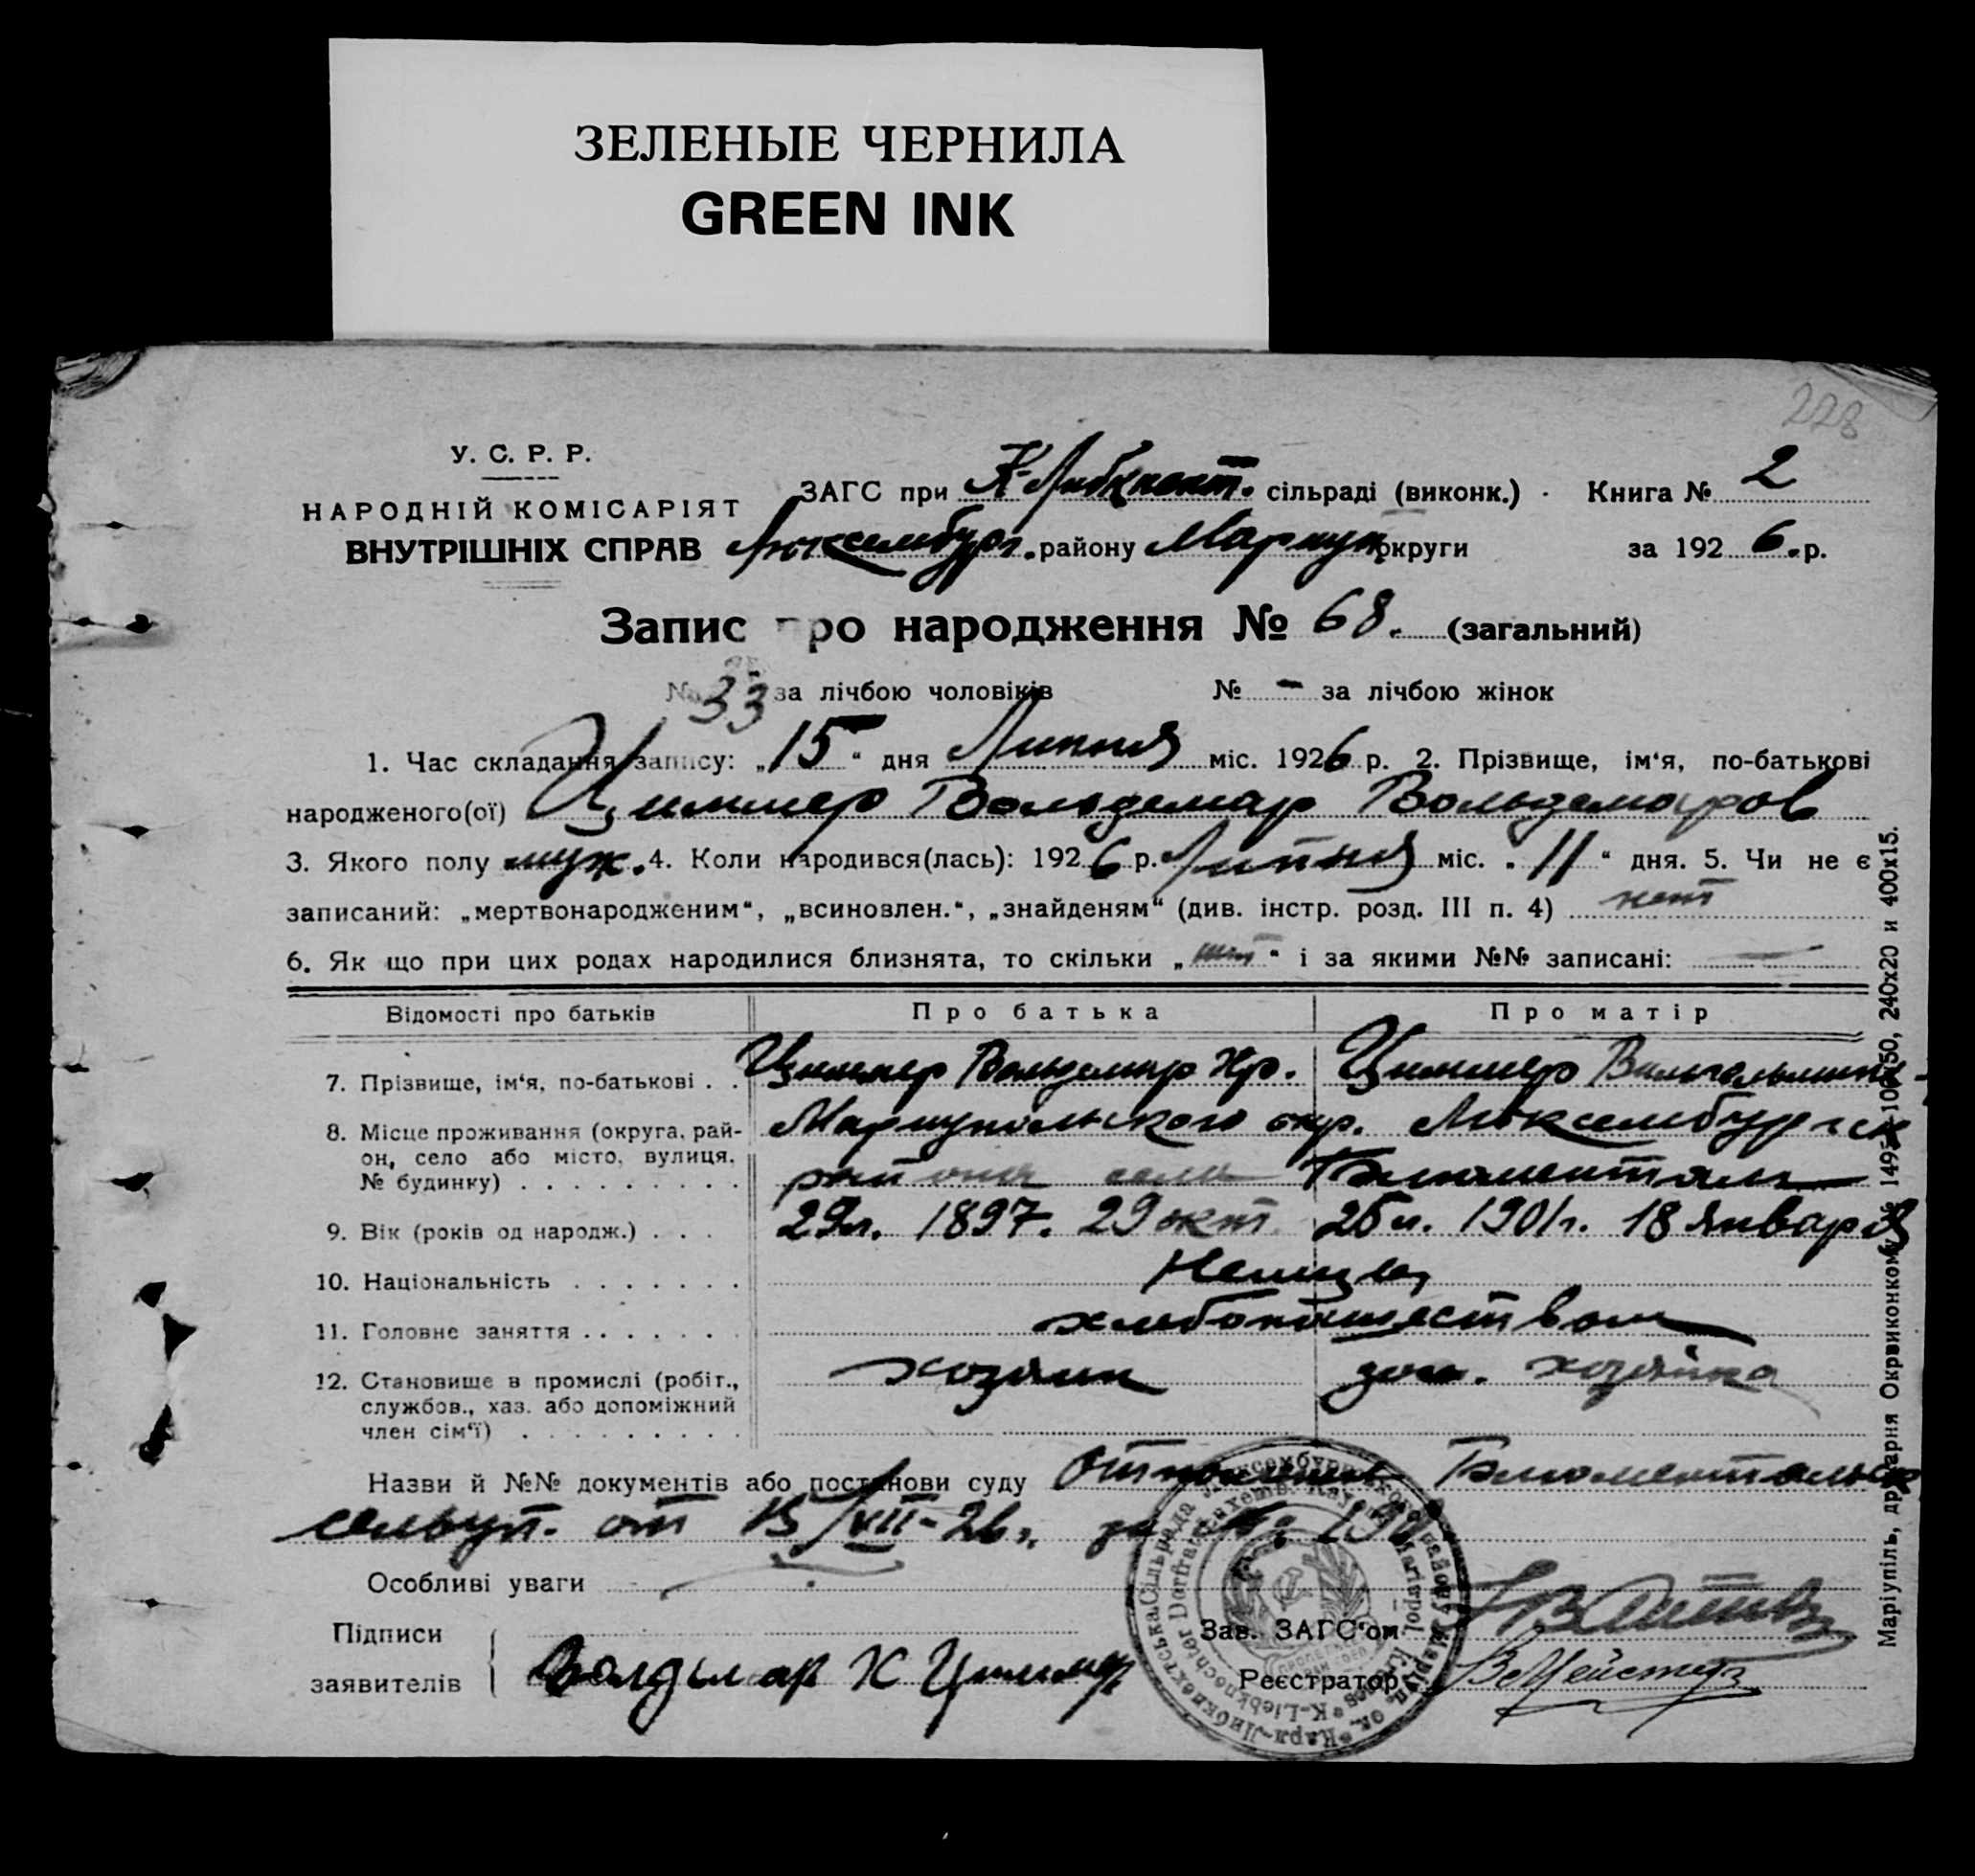 ЗЕЛЕНЫЕ ЧЕРНИЛА
GREEN INK
228
У. С. Р. Р.
НАРОДНІЙ КОМІСАРІЯТ
ВНУТРІШНІХ СПРАВ
ЗАГС при К-Либкнехт. сільраді (виконк.) · Книга № 2
Люксембург. району Мариуп. округи за 1926 р.
Запис про народження № 68. (загальний)
№ 33 за лічбою чоловіків № - за лічбою жінок
1. Час складання запису: „15“ дня Липня міс. 1926 р. 2. Прізвище, ім‘я, по-батькові
народженого(ої) Циммер Вольдемар Вольдемаров
3. Якого полу муж. 4. Коли народився(лась): 1926 р. Липня міс. „11“ дня. 5. Чи не є
записаний: „мертвонародженим“, „всиновлен.“, „знайденям“ (див. інстр. розд. III п. 4) нет
6. Як що при цих родах народилися близнята, то скільки „нет“ і за якими №№ записані: —
Відомості про батьків Про батька Про матір
7. Прізвище, ім‘я, по-батькові . . Циммер Вольдемар Хр. Циммер Вильгельмина
8. Місце проживання (округа, рай- Мариупольского окр. Люксембургск
он, село або місто, вулиця, района село Блюменталь
№ будинку) . . . . . . . . .
9. Вік (років од народж.) . . . 29л. 1897. 29 окт. 25 л. 1901 г. 18 Января
10. Національність . . . . . . . Немцы
11. Головне заняття . . . . . . . хлебопашеством
12. Становище в промислі (робіт., хозяин дом. хозяйка
службов., хаз. або допоміжний
член сім‘ї) . . . . . . . . .
Назви й №№ документів або постанови суду Отношение Блюментальск
сельуп. от 15/VII-26 г. за № 190
Особливі уваги —
Підписи
заявителів Волдымар Х Циммер
Зав. ЗАГС‘ом
Реєстратор В Мейстер
Маріупіль, друкарня Окрвиконкому № 1495-100х50, 240х20 и 400х15.